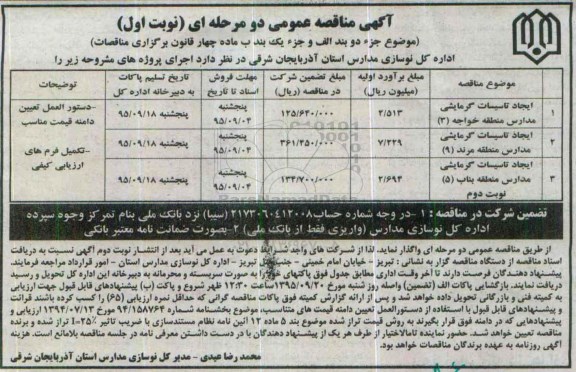 آگهی مناقصه عمومی دو مرحله ای (نوبت اول)
(موضوع جزء دو بند الف و جزء یک بند ب ماده چهار قانون برگزاری مناقصات)
اداره کل نوسازی مدارس استان آذربایجان شرقی در نظر دارد اجرای پروژه های مشروحه زیر را
موضوع مناقصه | مبلغ برآورد اولیه (میلیون ریال) | مبلغ تضمین شرکت در مناقصه (ریال) | مهلت فروش اسناد تا تاریخ | تاریخ تسلیم پاکات به دبیرخانه اداره کل | توضیحات
۱ | ایجاد تاسیسات گرمایشی مدارس منطقه خواجه (۳) | ۲/۵۱۳ | ۱۲۵/۶۴۰/۰۰۰ | پنجشنبه ۹۵/۰۹/۰۴ | پنجشنبه ۹۵/۰۹/۱۸ | -دستور العمل تعیین دامنه قیمت مناسب
۲ | ایجاد تاسیسات گرمایشی مدارس منطقه مرند (۹) | ۷/۲۲۹ | ۳۶۱/۴۵۰/۰۰۰ | پنجشنبه ۹۵/۰۹/۰۴ | پنجشنبه ۹۵/۰۹/۱۸ | -تکمیل فرم های ارزیابی کیفی
۳ | ایجاد تاسیسات گرمایشی مدارس منطقه بناب (۵) نوبت دوم | ۲/۶۹۴ | ۱۳۴/۷۰۰/۰۰۰ | پنجشنبه ۹۵/۰۹/۰۴ | پنجشنبه ۹۵/۰۹/۱۸
تضمین شرکت در مناقصه : ۱ -در وجه شماره حساب ۲۱۷۳۰۶۰۴۱۲۰۰۸ (سیبا) نزد بانک ملی بنام تمرکز وجوه سپرده
اداره کل نوسازی مدارس (واریزی فقط از بانک ملی) ۲-بصورت ضمانت نامه معتبر بانکی
از طریق مناقصه عمومی دو مرحله ای واگذار نماید. لذا از شرکت های واجد شرایط دعوت به عمل می آید بعد از انتشار نوبت دوم آگهی نسبت به دریافت
اسناد مناقصه از دستگاه مناقصه گزار به نشانی : تبریز - خیابان امام خمینی - جنب تبریز - اداره کل نوسازی مدارس استان - امور قرارداد مراجعه فرمایند.
پیشنهاد دهندگان فرصت دارند تا آخر وقت اداری مطابق جدول فوق پاکتهای خود را به صورت سربسته و محرمانه به دبیرخانه این اداره کل تحویل و رسید
دریافت نمایند. بازگشایی پاکات الف (تضمین) واصله روز شنبه مورخ ۱۳۹۵/۰۹/۲۰ ساعت ۱۲:۳۰ ظهر شروع و پاکت (ب) پیشنهادهای قابل قبول جهت ارزیابی
به کمیته فنی و بازرگانی تحویل داده خواهد شد و پس از ارائه گزارش کمیته فوق پاکات مناقصه گرانی که حداقل نمره ارزیابی (۶۵) را کسب کرده باشند قرائت
و پیشنهادهای قابل قبول با استفاده از دستورالعمل تعیین دامنه قیمت های متناسب، موضوع بخشنامه شماره ۹۴/۱۵۸۷۶۴ مورخ ۱۳۹۴/۰۷/۱۳ ارزیابی و
پیشنهادهایی که در دامنه فوق قرار بگیرند به روش قیمت تراز شده موضوع بند ۵ ماده ۱۲ آئین نامه نظام مستندسازی با ضریب تاثیر I=۲۵% تراز شده و برنده
مناقصه تعیین خواهد شد. حضور نماینده تام الاختیار از طرف هر یک از پیشنهاد دهندگان با در دست داشتن معرفی نامه در جلسه مناقصه بلامانع است. هزینه
آگهی روزنامه به عهده برندگان مناقصات خواهد بود.
محمد رضا عبدی - مدیر کل نوسازی مدارس استان آذربایجان شرقی